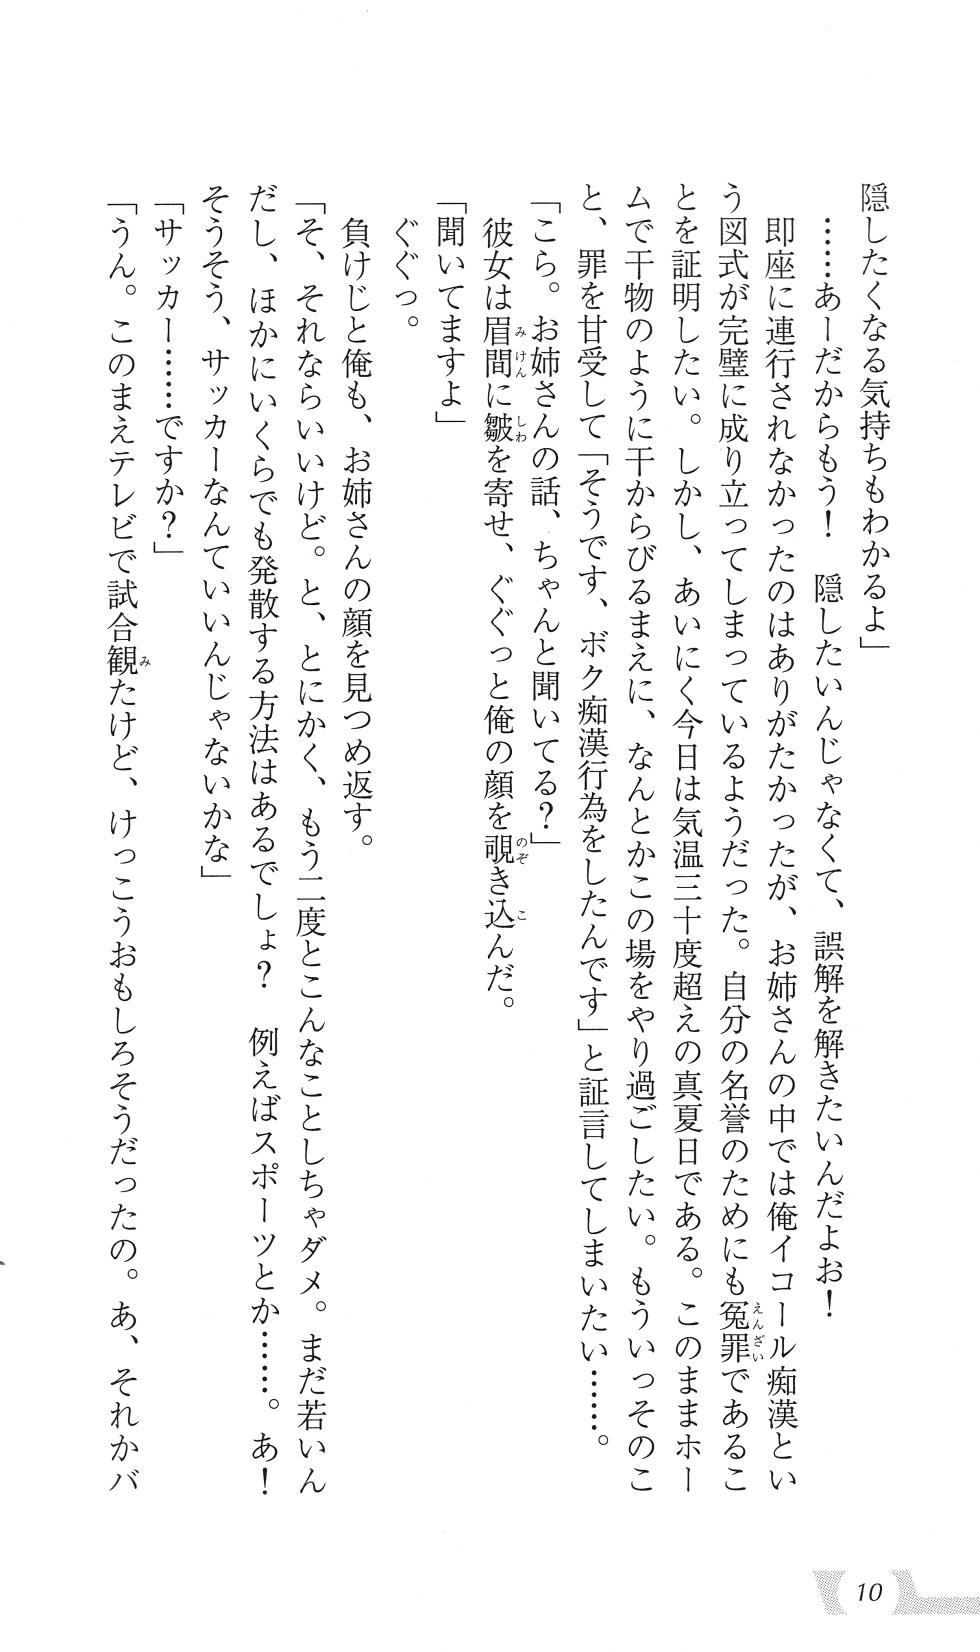 隠したくなる気持ちもわかるよ」
……あーだからもう！　隠したいんじゃなくて、誤解を解きたいんだよお！
即座に連行されなかったのはありがたかったが、お姉さんの中では俺イコール痴漢とい
う図式が完璧に成り立ってしまっているようだった。自分の名誉のためにも冤罪であるこ
とを証明したい。しかし、あいにく今日は気温三十度超えの真夏日である。このままホー
ムで干物のように干からびるまえに、なんとかこの場をやり過ごしたい。もういっそのこ
と、罪を甘受して「そうです、ボク痴漢行為をしたんです」と証言してしまいたい……。
「こら。お姉さんの話、ちゃんと聞いてる？」
彼女は眉間に皺を寄せ、ぐぐっと俺の顔を覗き込んだ。
「聞いてますよ」
ぐぐっ。
負けじと俺も、お姉さんの顔を見つめ返す。
「そ、それならいいけど。と、とにかく、もう二度とこんなことしちゃダメ。まだ若いん
だし、ほかにいくらでも発散する方法はあるでしょ？　例えばスポーツとか……。あ！
そうそう、サッカーなんていいんじゃないかな」
「サッカー……ですか？」
「うん。このまえテレビで試合観たけど、けっこうおもしろそうだったの。あ、それかバ
10